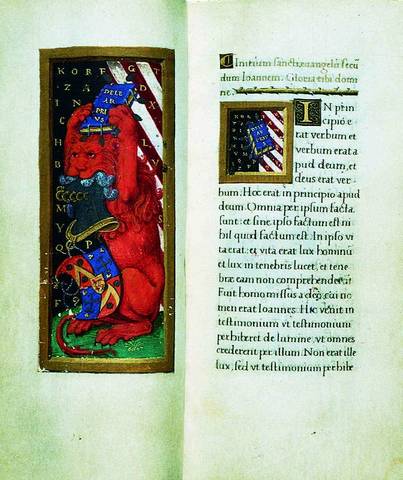 K O R F G T
DELE
AR
PRIVS
Initium sancti euangelii secū
dum Ioannem. Gloria tibi domi
ne.
IN prin
cipio e
rat verbum et
verbum erat a
pud deum, et
deus erat ver
bum. Hoc erat in principio apud
deum. Omnia per ipsum facta
sunt: et sine ipso factum est ni
hil quod factum est. In ipso vi
ta erat, et vita erat lux hominū
et lux in tenebris lucet, et tene
bræ eam non comprehenderūt.
Fuit homo missus a deo, cui no
men erat Ioannes. Hic venit in
testimonium vt testimonium
perhiberet de lumine, vt omnes
crederent per illum. Non erat ille
lux, sed vt testimonium perhibe